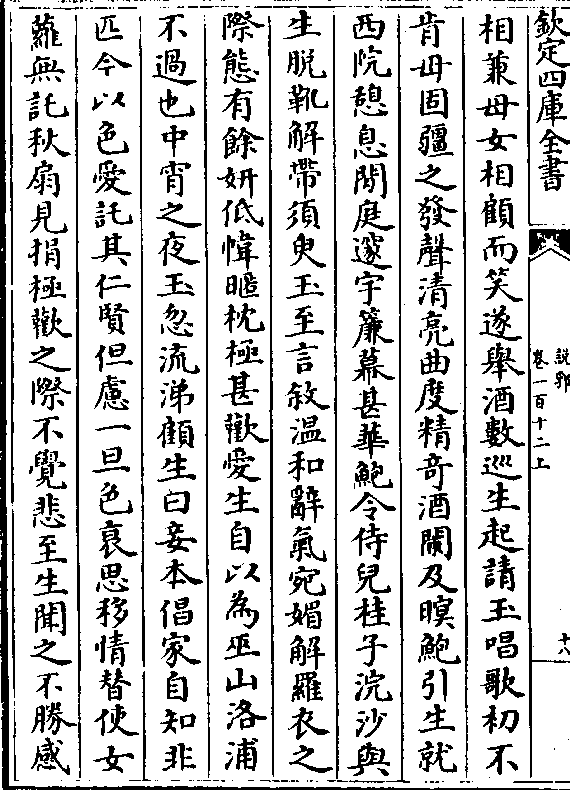 欽定四庫全書
說郛
卷一百十二上
十八
相兼母女相顧而笑遂舉酒數巡生起請玉唱歌初不
肯母固彊之發聲清亮曲度精奇酒闌及暝鮑引生就
西院憩息閒庭邃宇簾幕甚華鮑令侍兒桂子浣沙與
生脱靴解帶須臾玉至言敘温和辭氣宛媚解羅衣之
際態有餘妍低幃暱枕極甚歡愛生自以為巫山洛浦
不過也中宵之夜玉忽流涕顧生曰妾本倡家自知非
匹今以色愛託其仁賢但慮一旦色衰思移情替使女
蘿無託秋扇見捐極歡之際不覺悲至生聞之不勝感